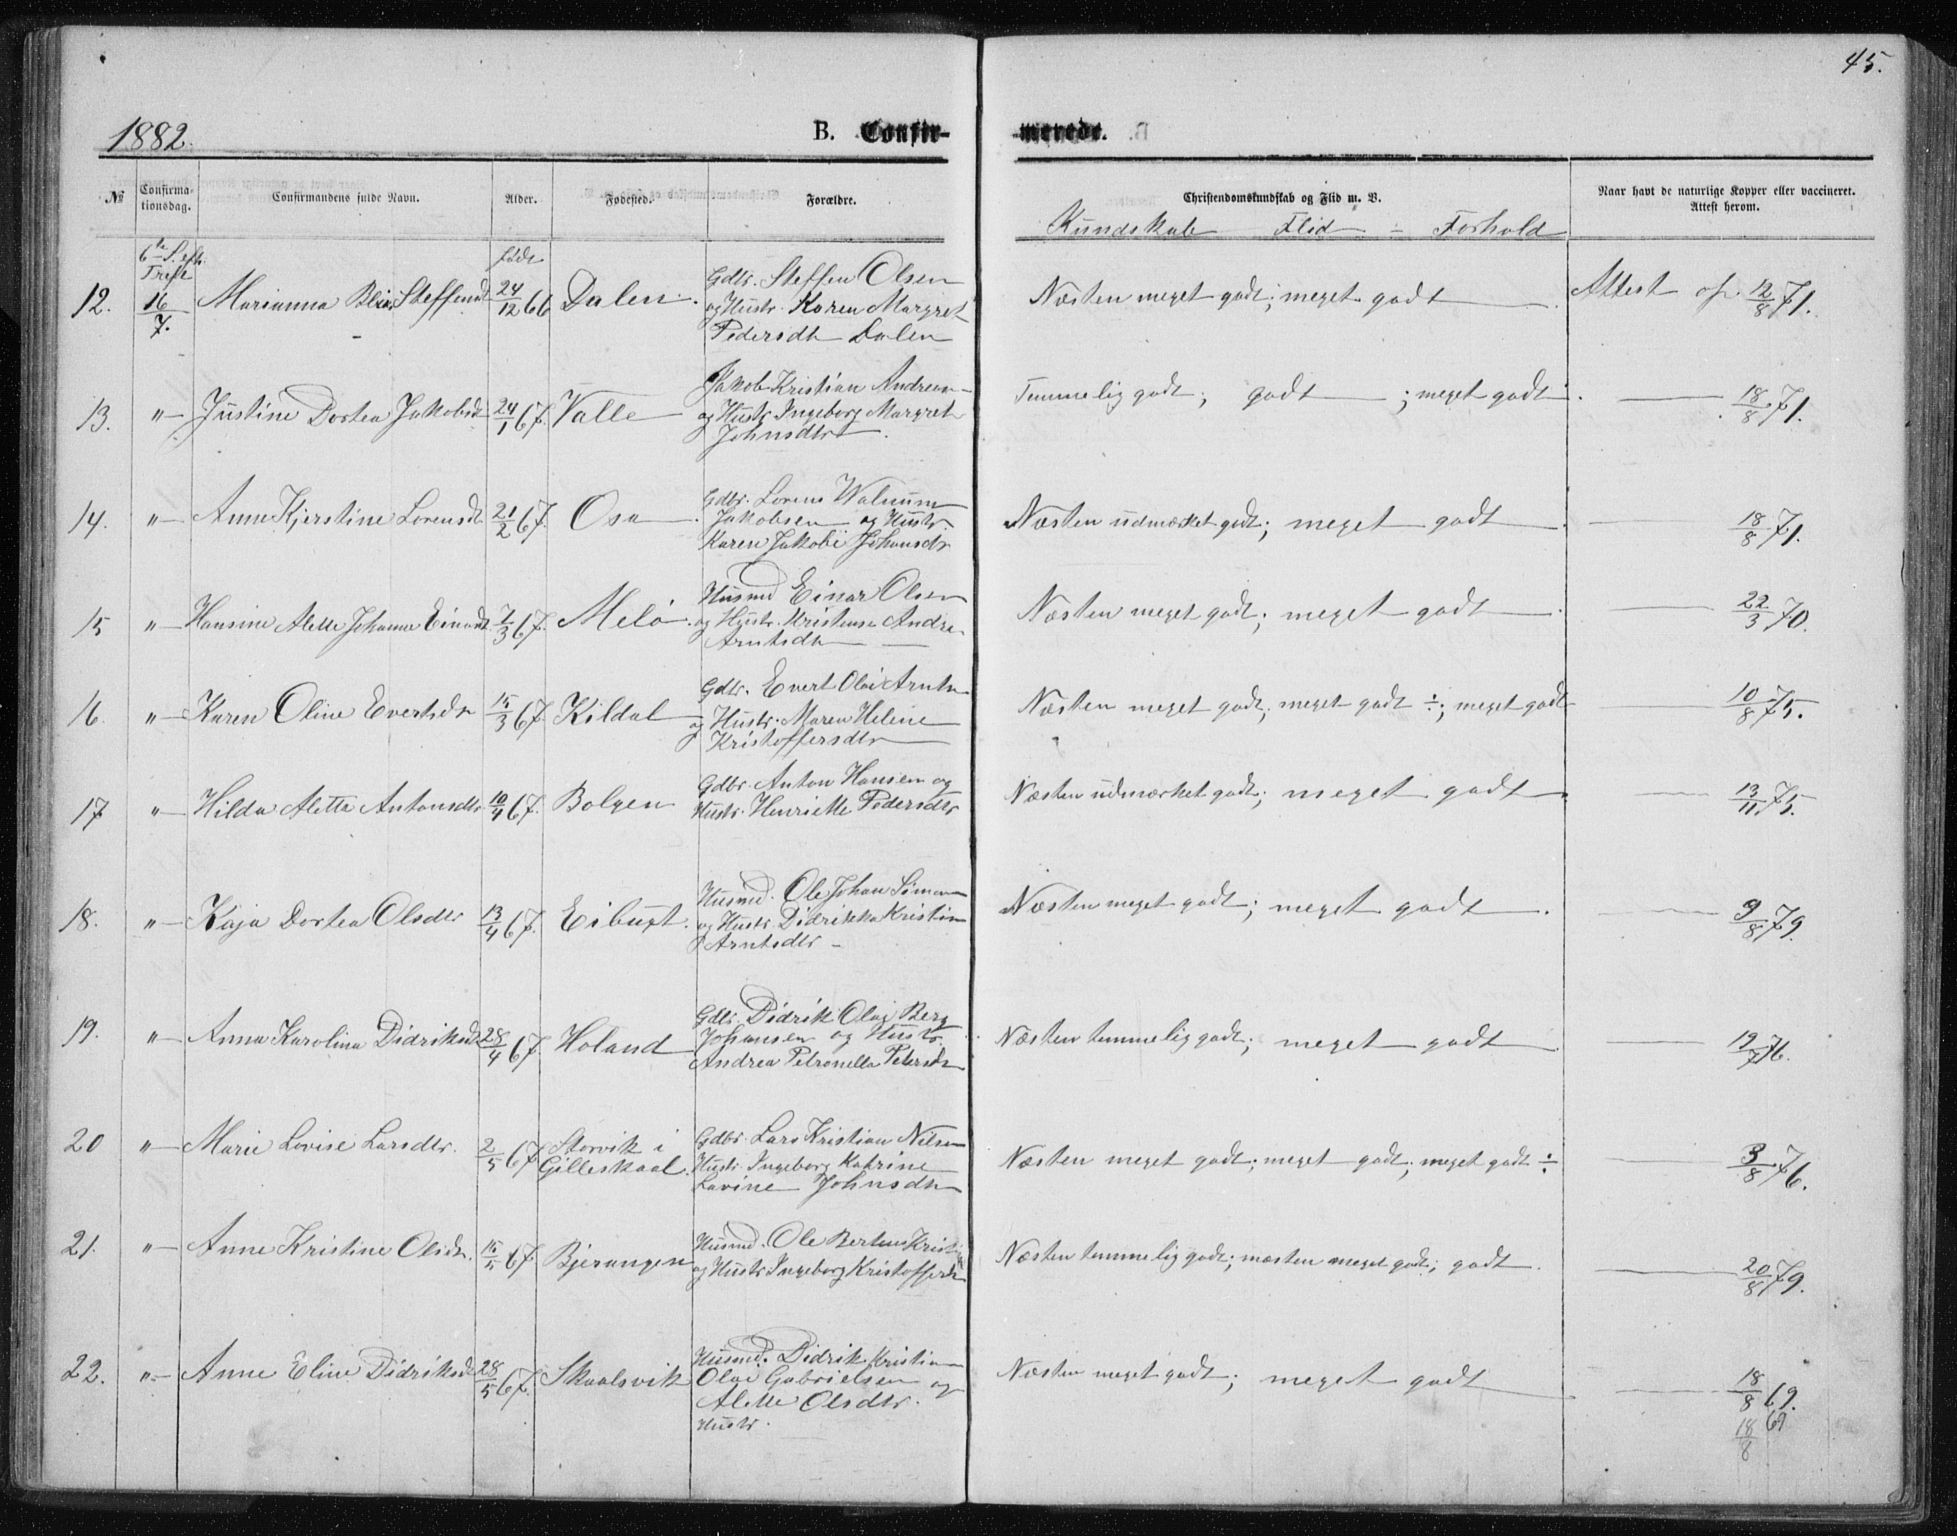 45.
1882.
B. Confir-
merede.
№
Confirma-
tionsdag.
Confirmandens fulde Navn.
Alder.
Fødested.
Forældre.
Christendomskundskab og Flid m. V.
Naar havt de naturlige Kopper eller vaccineret.
Attest herom.
Kundskab Flid - Forhold
6te S. eft.
Treft.
16/7.
født
12. Marianna Steffensdt 24/12 66 Dalen
Gdbr. Steffen Olsen
og Hustr. Karen Margret
Pedersdtr Dalen
Næsten meget godt; meget godt
Attest af 12/8 71.
13. " Justine Dortea Jakobsdt 24/1 67. Valle
Jakob Kristian Andreas
og Hustr Ingeborg Margret
Johnsdtr
Temmelig godt; godt ; meget godt.
18/8 71.
14. " Anne Kjerstine Lorensdt 21/2 67. Osa
Gdbr. Lorens Walnum
Jakobsen og Hustr.
Karen Jakobi Johansdtr
Næsten udmærket godt; meget godt
18/8 71.
15 " Hansine Alette Johanna Einarsdt. 7/3 67. Melö
Husmd Einar Olsen
og Hustr. Kristense Andrea
Arntsdtr
Næsten meget godt; meget godt
22/3 70.
16. " Karen Oline Evertsdtr 15/3 67. Kildal
Gdbr. Evert Olai Arntsn
og Hustr. Maren Helene
Kristoffersdtr
Næsten meget godt; meget godt ÷; meget godt
10/8 75.
17 " Hilda Aletta Antonsdtr 10/4 67. Bolgen
Gdbr. Anton Hansen og
Hustr. Henriette Pedersdtr
Næsten udmærket godt; meget godt
13/11 75.
18. " Kaja Dortea Olsdtr 13/4 67. Eibugt.
Husmd. Ole Johan Simon
og Hustr Didrikka Kristin
Arntsdtr
Næsten meget godt; meget godt
9/8 79.
19. " Anna Karolina Didriksdt 28/4 67. Holand
Gdbr. Didrik Olai Berg
Johansen og Hustr.
Andrea Petronella Petersdtr
Næsten temmelig godt; meget godt
19/7 76.
20 " Marie Lovise Larsdtr. 2/5 67. Storvik i
Gilleskaal.
Gdbr. Lars Kristian Nilsen
Hustr Ingeborg Katrine
Lavine Johnsdtr
Næsten meget godt; meget godt; meget godt ÷
3/8 76.
21. " Anne Kristine Olsdtr. 15/5 67. Bjerangen
Husmd. Ole Bertheus Krist
og Hustr Ingeborg Kristoffersdtr
Næsten temmelig godt; næsten meget godt; godt.
20/8 79.
22. " Anne Eline Didriksdt 28/5 67. Skaalsvik
Husmd. Didrik Kristian
Olai Gabrielsen og
Alette Olsdtr.
Hustr.
Næsten meget godt; meget godt
18/8 69.
18/8 69